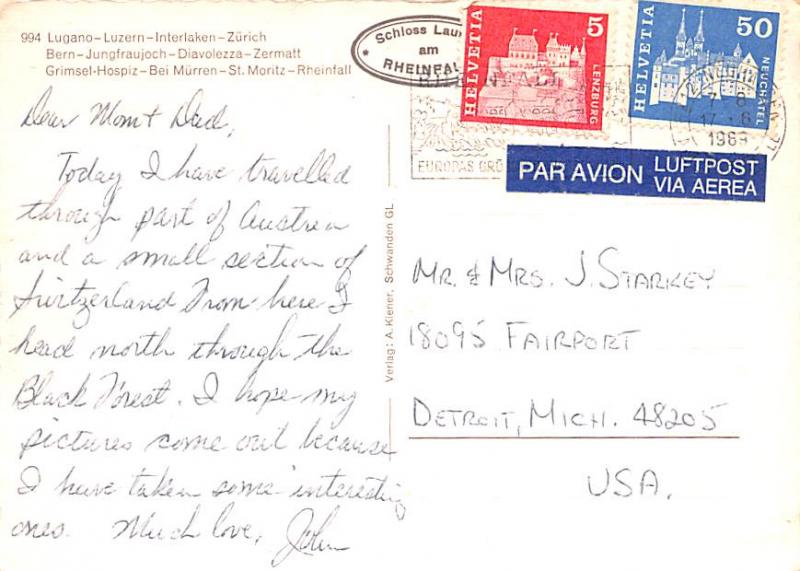 994 Lugano–Luzern–Interlaken–Zürich
Bern–Jungfraujoch–Diavolezza–Zermatt
Grimsel-Hospiz–Bei Mürren–St. Moritz–Rheinfall
Schloss
am
RHEINFAL
HELVETIA
5
LENZBURG
HELVETIA
50
NEUCHÂTEL
17. 8
EUROPAS GRÖ
PAR AVION
LUFTPOST
VIA AEREA
Dear Mom & Dad,
Today I have travelled
through part of Austria
and a small section of
Switzerland From here I
head north through the
Black Forest. I hope my
pictures come out because
I have taken some interesting
ones. Much love, John
Verlag: A. Kiener, Schwanden GL
Mr. & Mrs. J. Starkey
18095 Fairport
Detroit, Mich. 48205
USA.